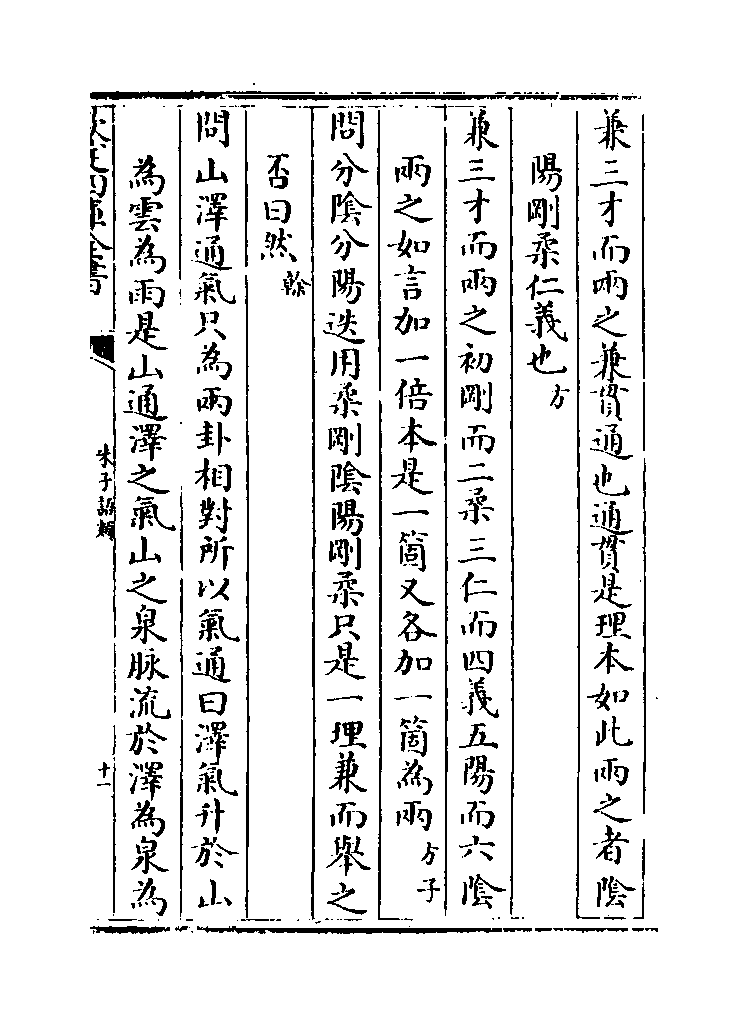 兼三才而兩之兼貫通也通貫是理本如此兩之者陰
陽剛柔仁義也方
兼三才而兩之初剛而二柔三仁而四義五陽而六陰
兩之如言加一倍本是一箇又各加一箇為兩方子
問分陰分陽迭用柔剛陰陽剛柔只是一理兼而舉之
否曰然榦
問山澤通氣只為兩卦相對所以氣通曰澤氣升於山
為雲為雨是山通澤之氣山之泉脉流於澤為泉為
欽定四庫全書
朱子語類
十一